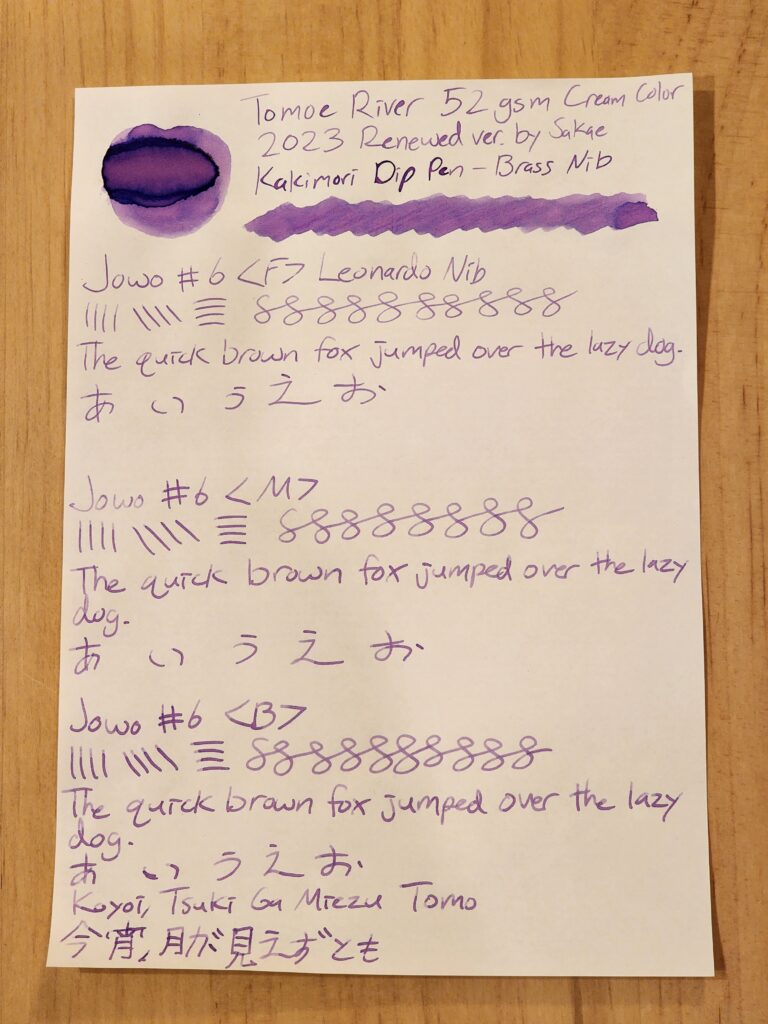 Tomoe River 52 gsm Cream Color
2023 Renewed ver. by Sakae
Kakimori Dip Pen - Brass Nib
Jowo #6 <F> Leonardo Nib
The quick brown fox jumped over the lazy dog.
あ い う え お
Jowo #6 <M>
The quick brown fox jumped over the lazy
dog.
あ い う え お
Jowo #6 <B>
The quick brown fox jumped over the lazy
dog.
あ い う え お
Koyoi, Tsuki Ga Miezu Tomo
今宵、月が見えずとも